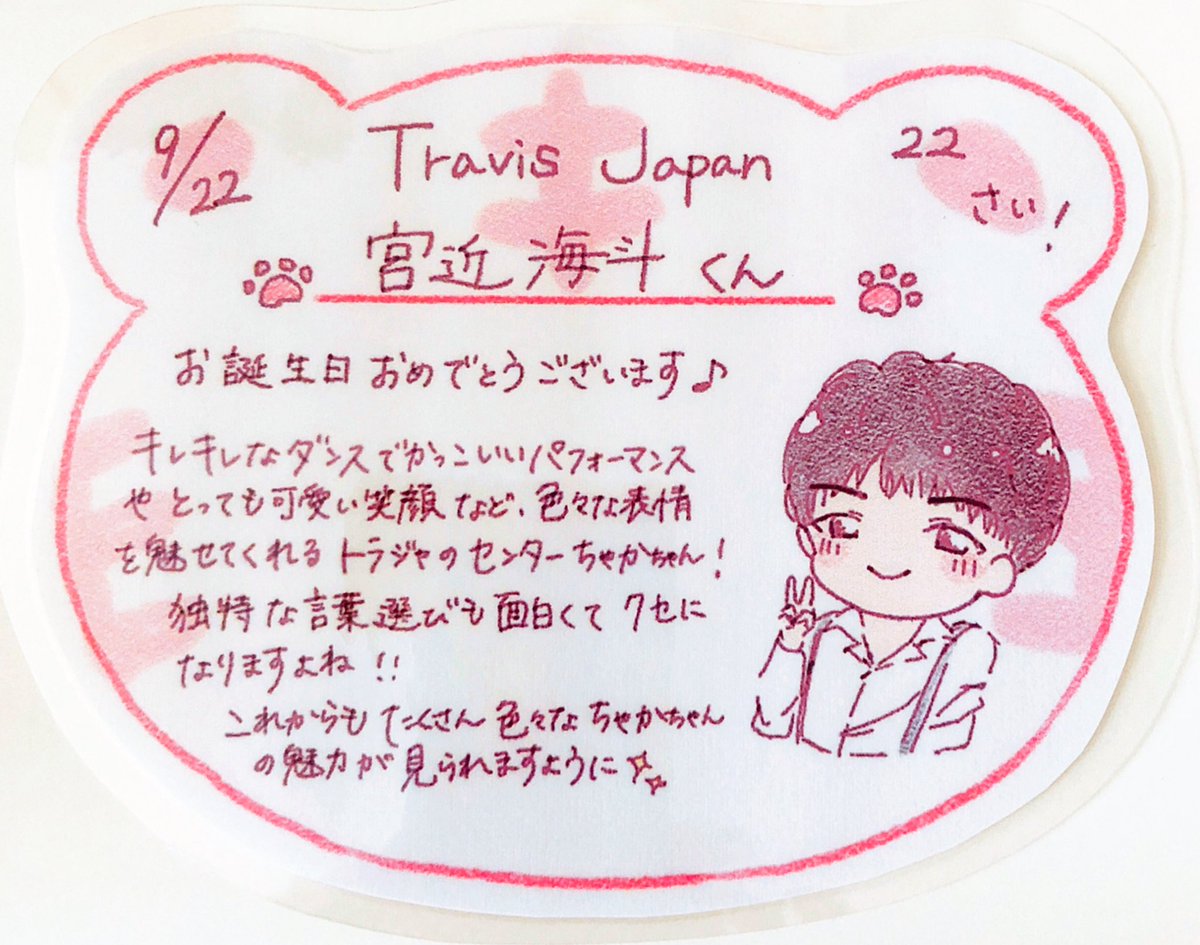 9/22
Travis Japan
22さい!
宮近 海斗 くん
お誕生日おめでとうございます♪
キレキレなダンスでかっこいいパフォーマンス
やとっても可愛い笑顔など、色々な表情
を魅せてくれるトラジャのセンターちゃかちゃん!
独特な言葉選びも面白くてクセに
なりますよね!!
これからもたくさん色々なちゃかちゃん
の魅力が見られますように